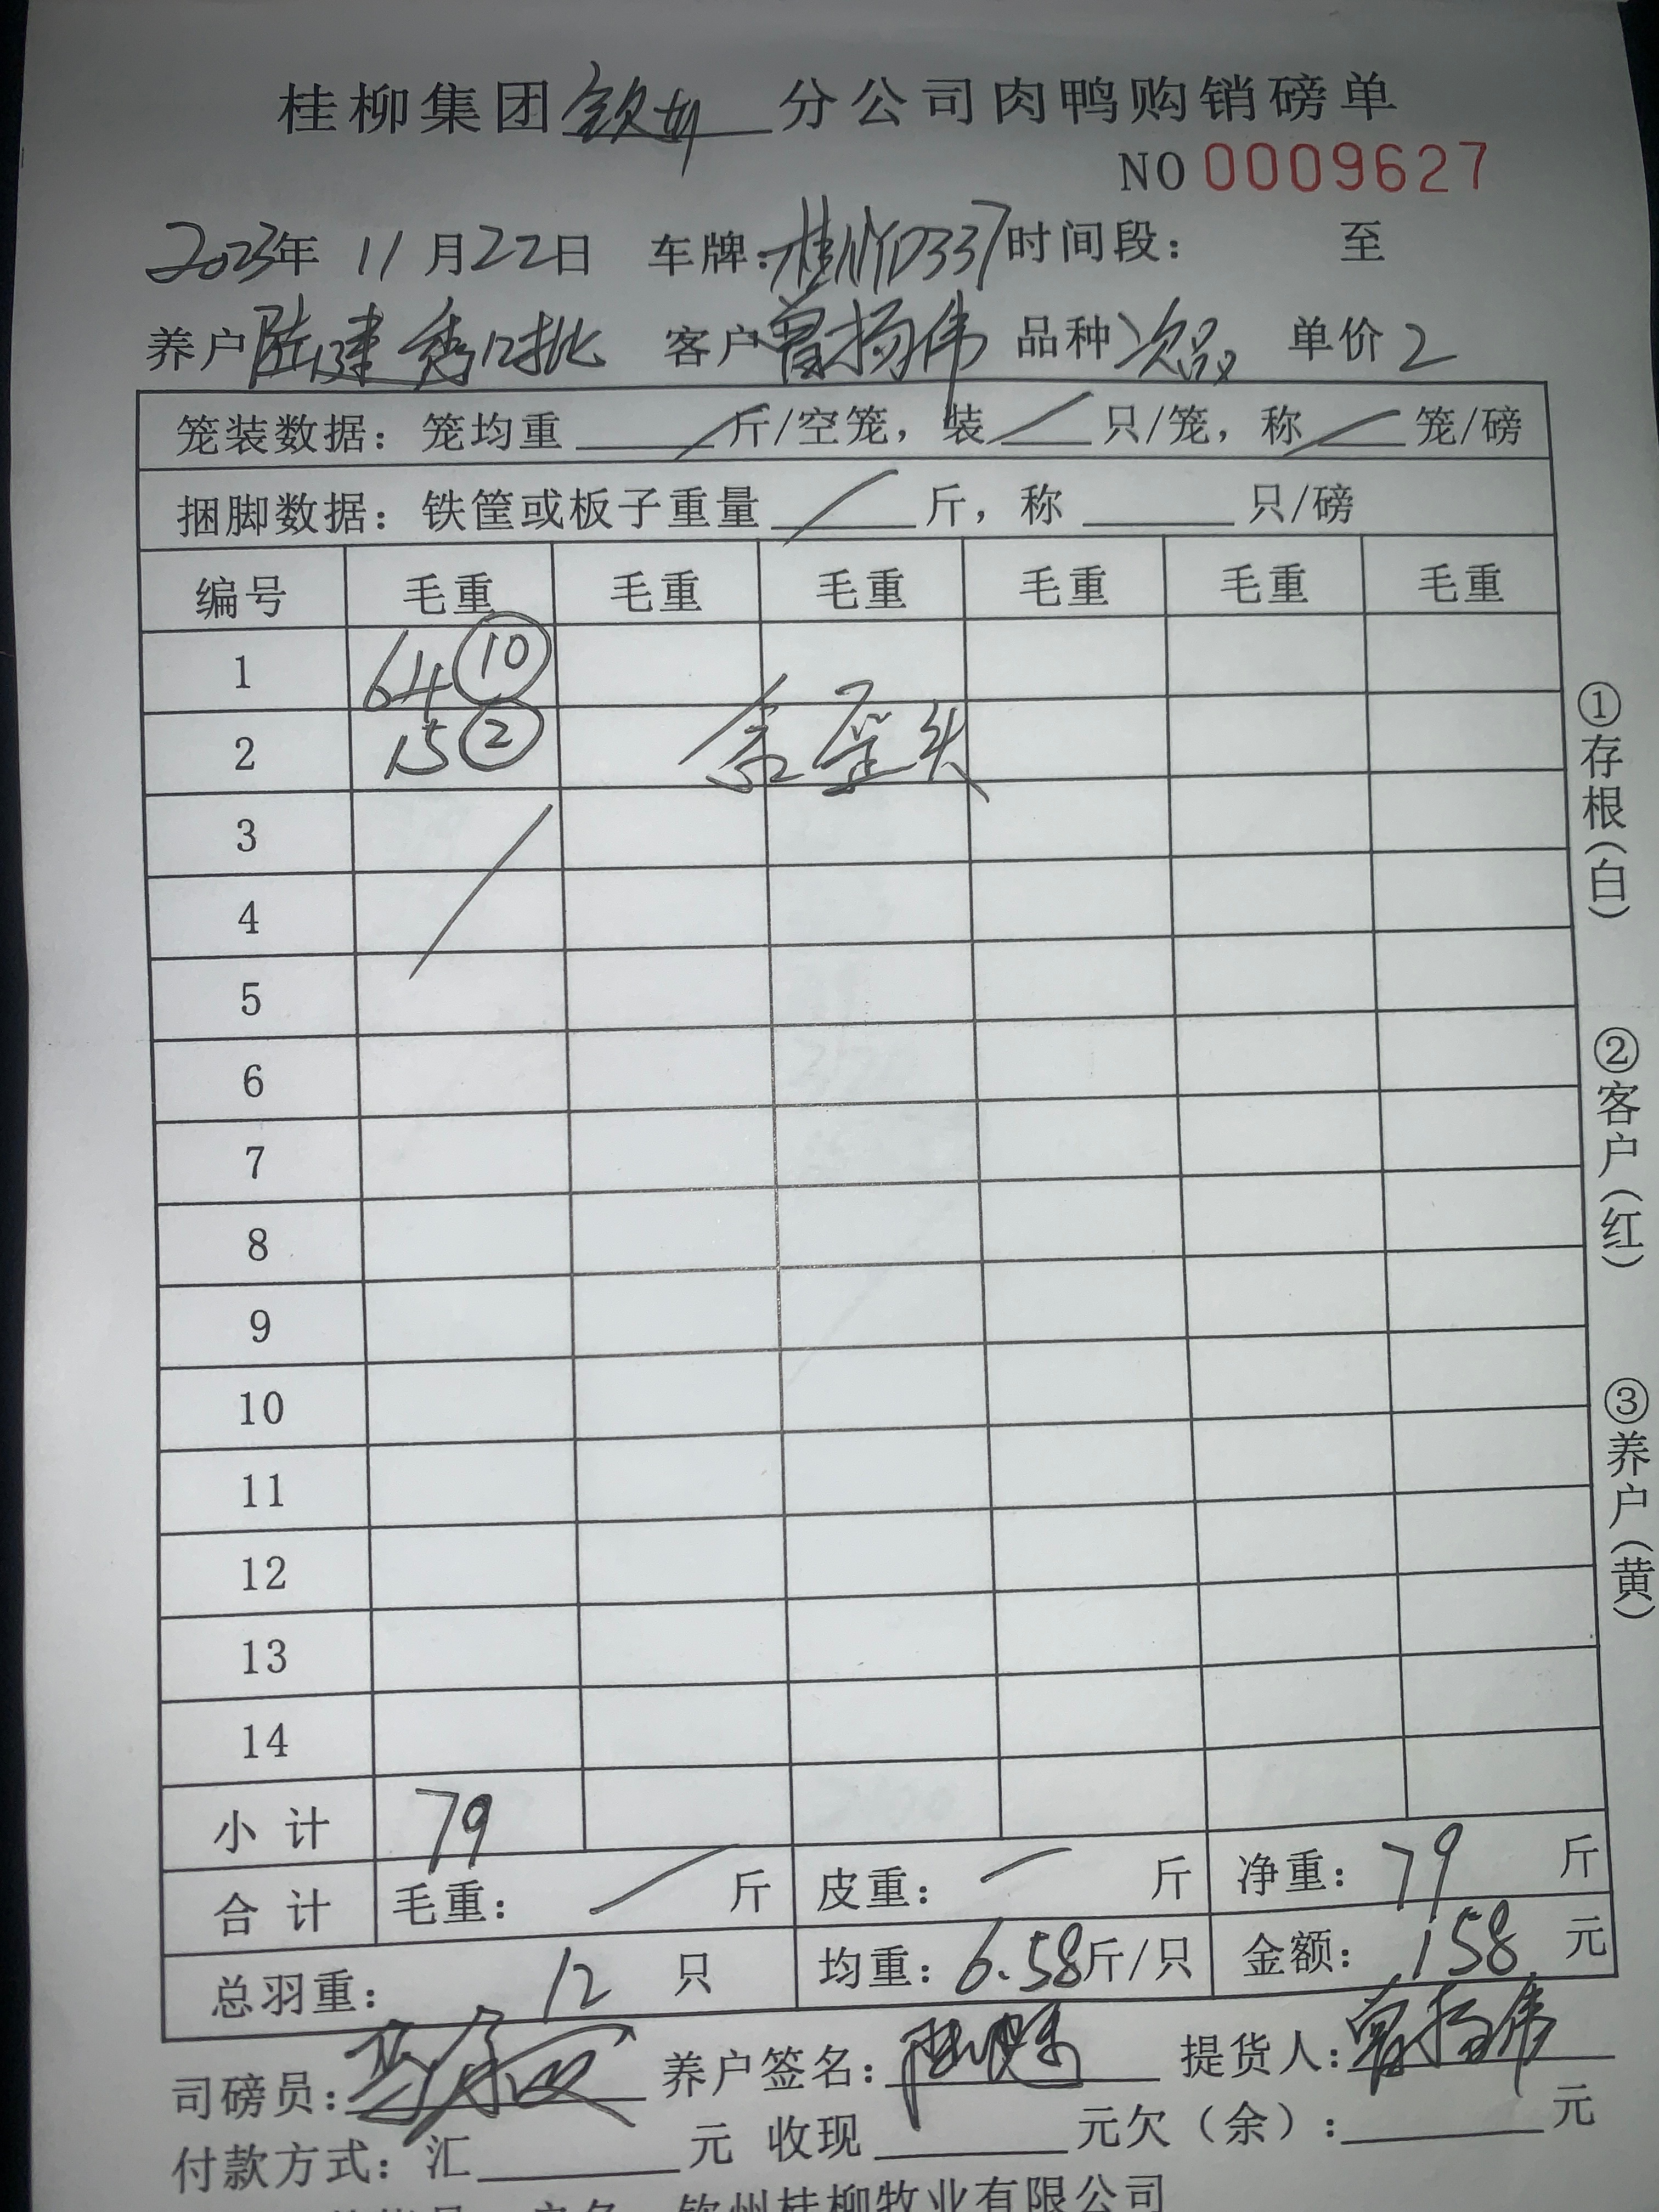 桂柳集团钦州分公司肉鸭购销磅单
NO 0009627
2023年 11月22日 车牌:桂NYD337时间段： 至
养户陆建秀12批 客户曾扬伟 品种次品 单价2
笼装数据：笼均重 斤/空笼，装 只/笼，称 笼/磅
捆脚数据：铁筐或板子重量 斤，称 只/磅
编号 毛重 毛重 毛重 毛重 毛重 毛重
1 64 ⑩
2 15 ② 含歪头
3
4
5
6
7
8
9
10
11
12
13
14
小计 79
合计 毛重： 斤 皮重： 斤 净重：79 斤
总羽重： 12 只 均重：6.58斤/只 金额：158 元
司磅员： 养户签名： 提货人：曾扬伟
付款方式：汇 元 收现 元欠（余）： 元
钦州桂柳牧业有限公司
①存根（白）
②客户（红）
③养户（黄）